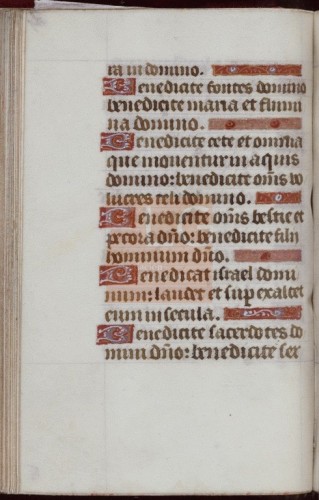 ra in domino.
Benedicite fontes domino
benedicite maria et flumi
na domino.
Benedicite cete et omnia
que mouentur in aquis
domino: benedicite om̃s vo
lucres celi domino.
Benedicite om̃s bestie et
pecora dño: benedicite filij
hominum dño.
Benedicat israel domi
num: laudet et sup exaltet
eum in secula.
Benedicite sacerdotes do
mini dño: benedicite ser